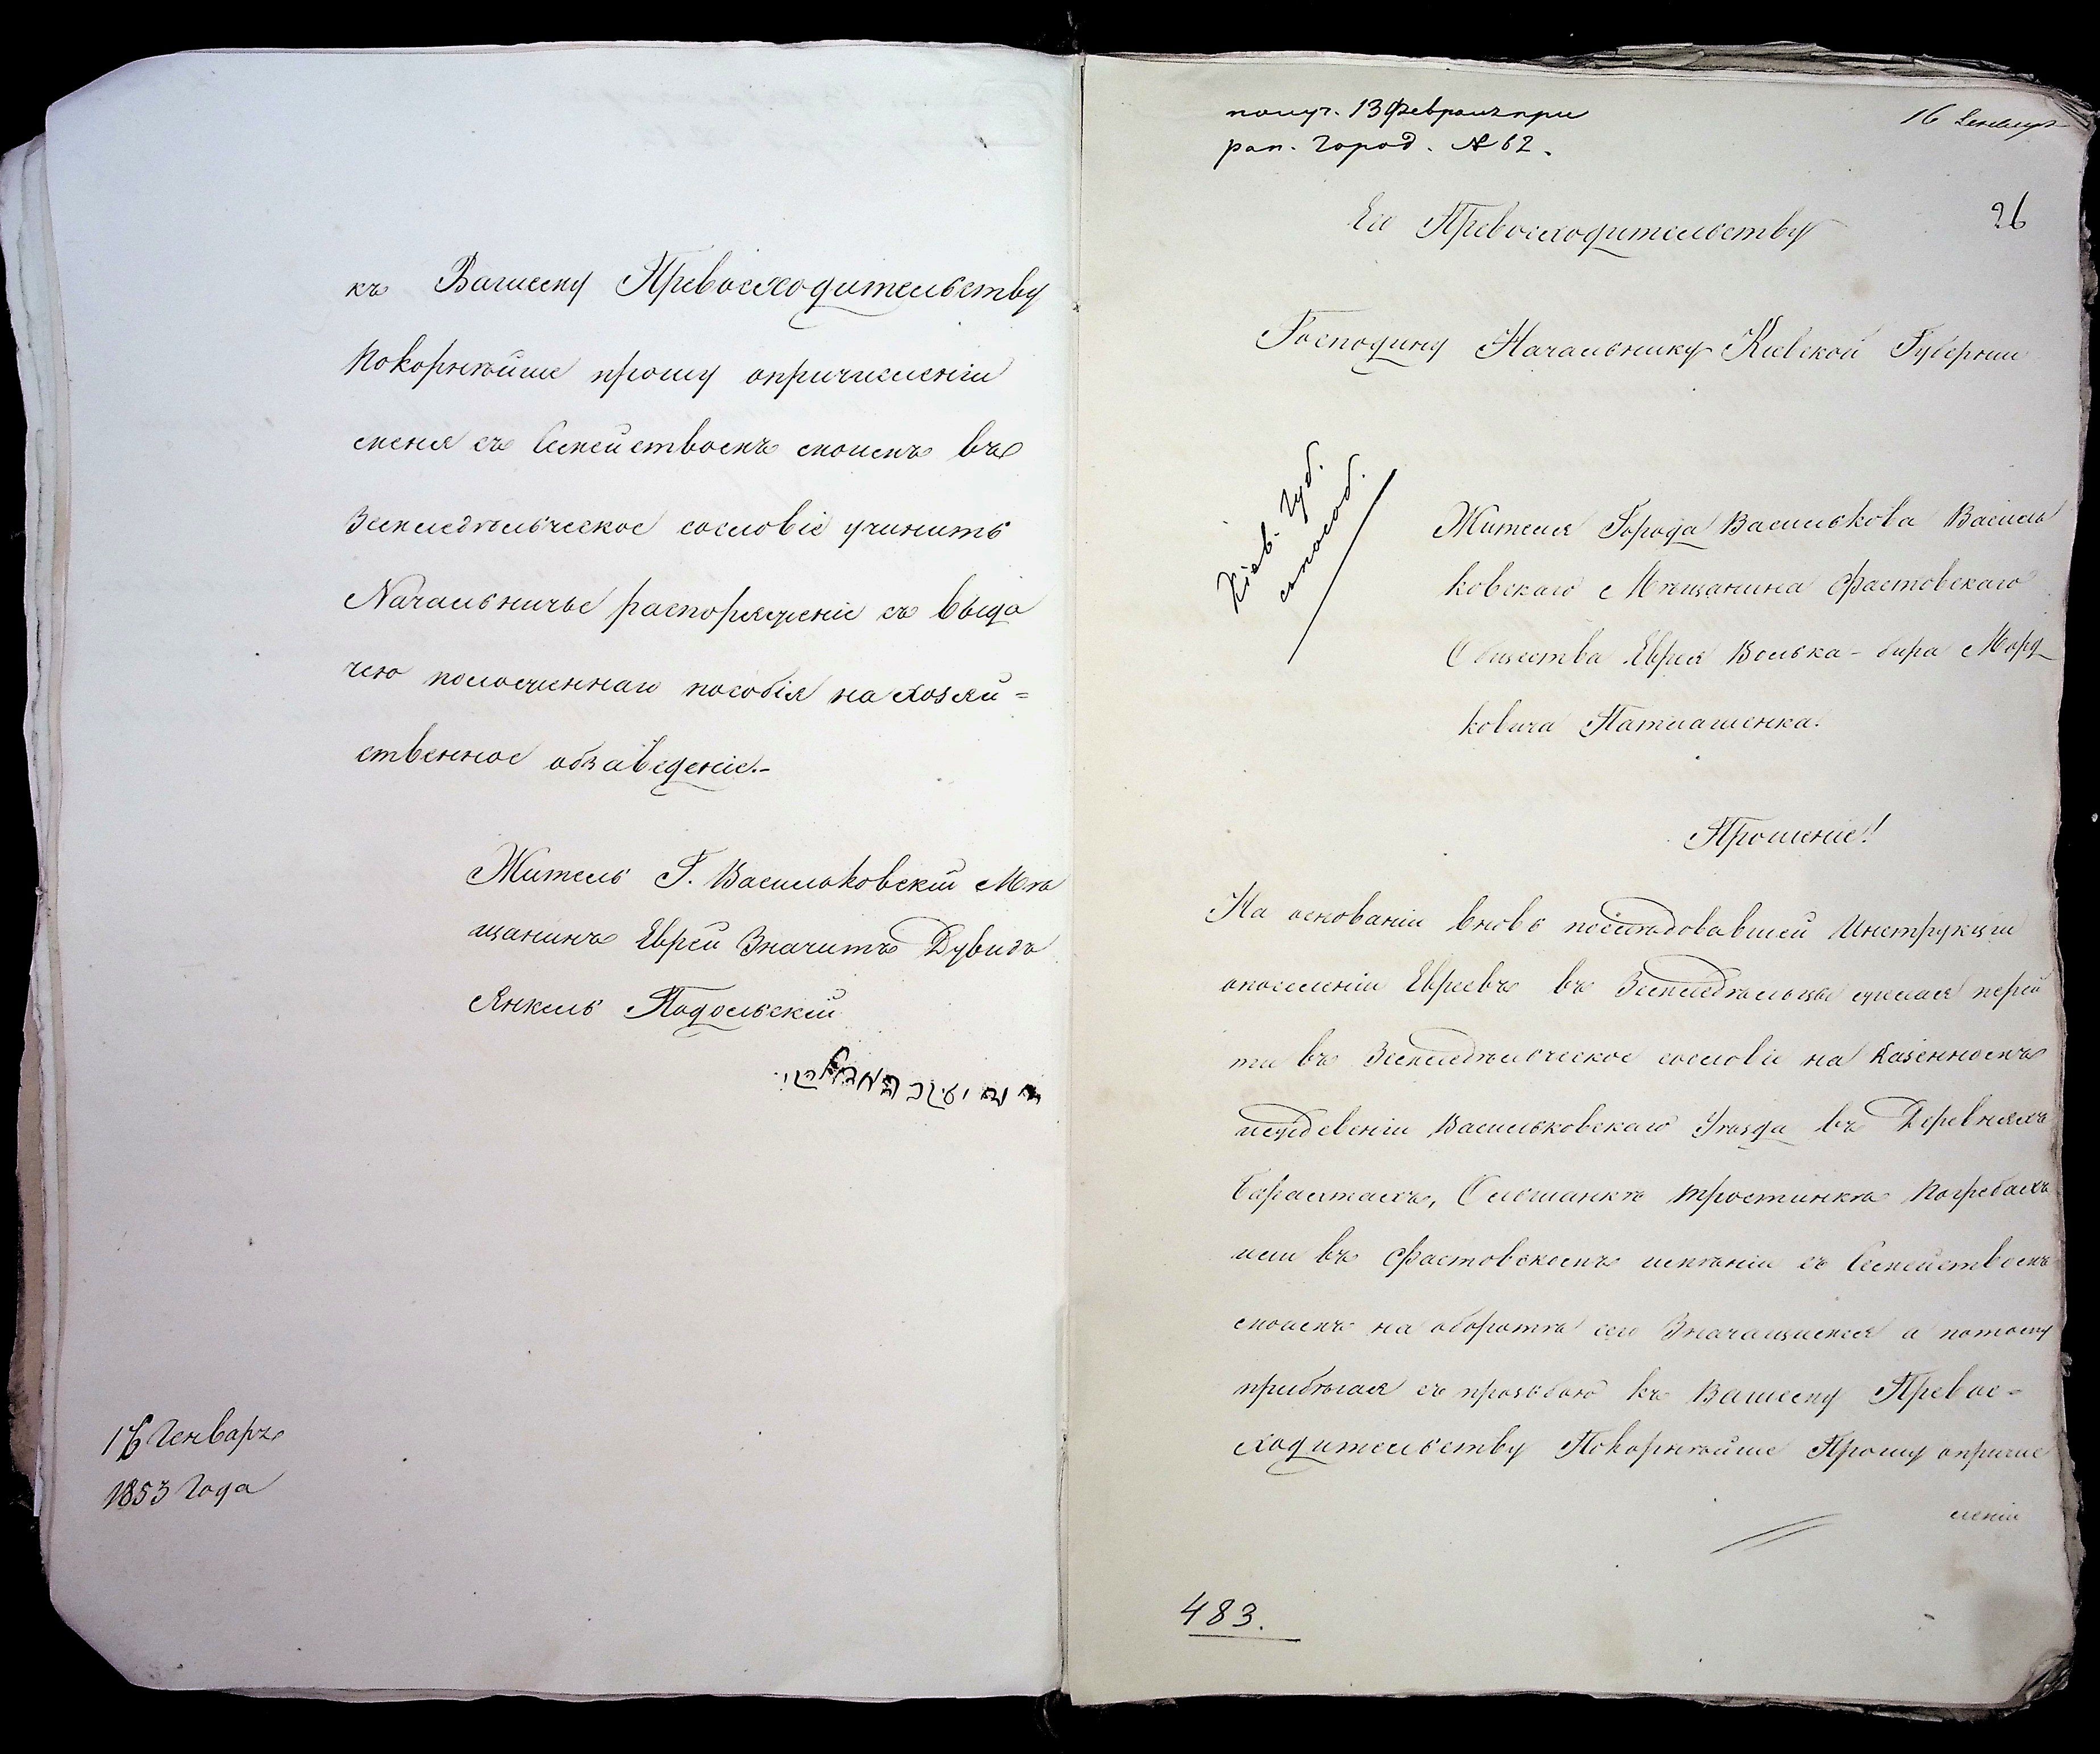 къ Вашему Превосходительству
Покорнѣйше прошу опричисленіи
меня съ Семействомъ моимъ въ
Земледѣльческое сословіе учинить
Начальничье распоряженіе съ выда
чею положеннаго пособія на хозяй=
ственное обзаведеніе.-
Житель Г. Васильковскій Мѣ
щанинъ Еврей Значитъ Дувидъ
Янкель Подольскій
16 Генваръ
1853 Года
получ. 13 Февраля при
рап. Город. № 62.
16 Генваря
26
Его Превосходительству
Господину Начальнику Кіевской Губерніи
Кіев. Губ.
Жителя Города Василькова Василь
ковскаго Мѣщанина Фастовскаго
Общества Еврея Волька-бира Морд
ковича Патлашенка.
Прошеніе!
На основаніи вновь послѣдовавшей Инструкціи
опоселеніи Евреевъ въ Земледѣльцы желая перей
ти въ Земледѣльческое сословіе на Казенномъ
иждевеніи Васильковскаго Уѣзда въ Деревняхъ
Барахтахъ, Ольшанкѣ Тростинкѣ Погребахъ
или въ Фастовскомъ имѣніи съ Семействомъ
моимъ на оборотѣ сего Значащимся а потому
прибѣгая съ прозьбою къ Вашему Превос=
ходительству Покорнѣйше Прошу опричис
леніи
483.